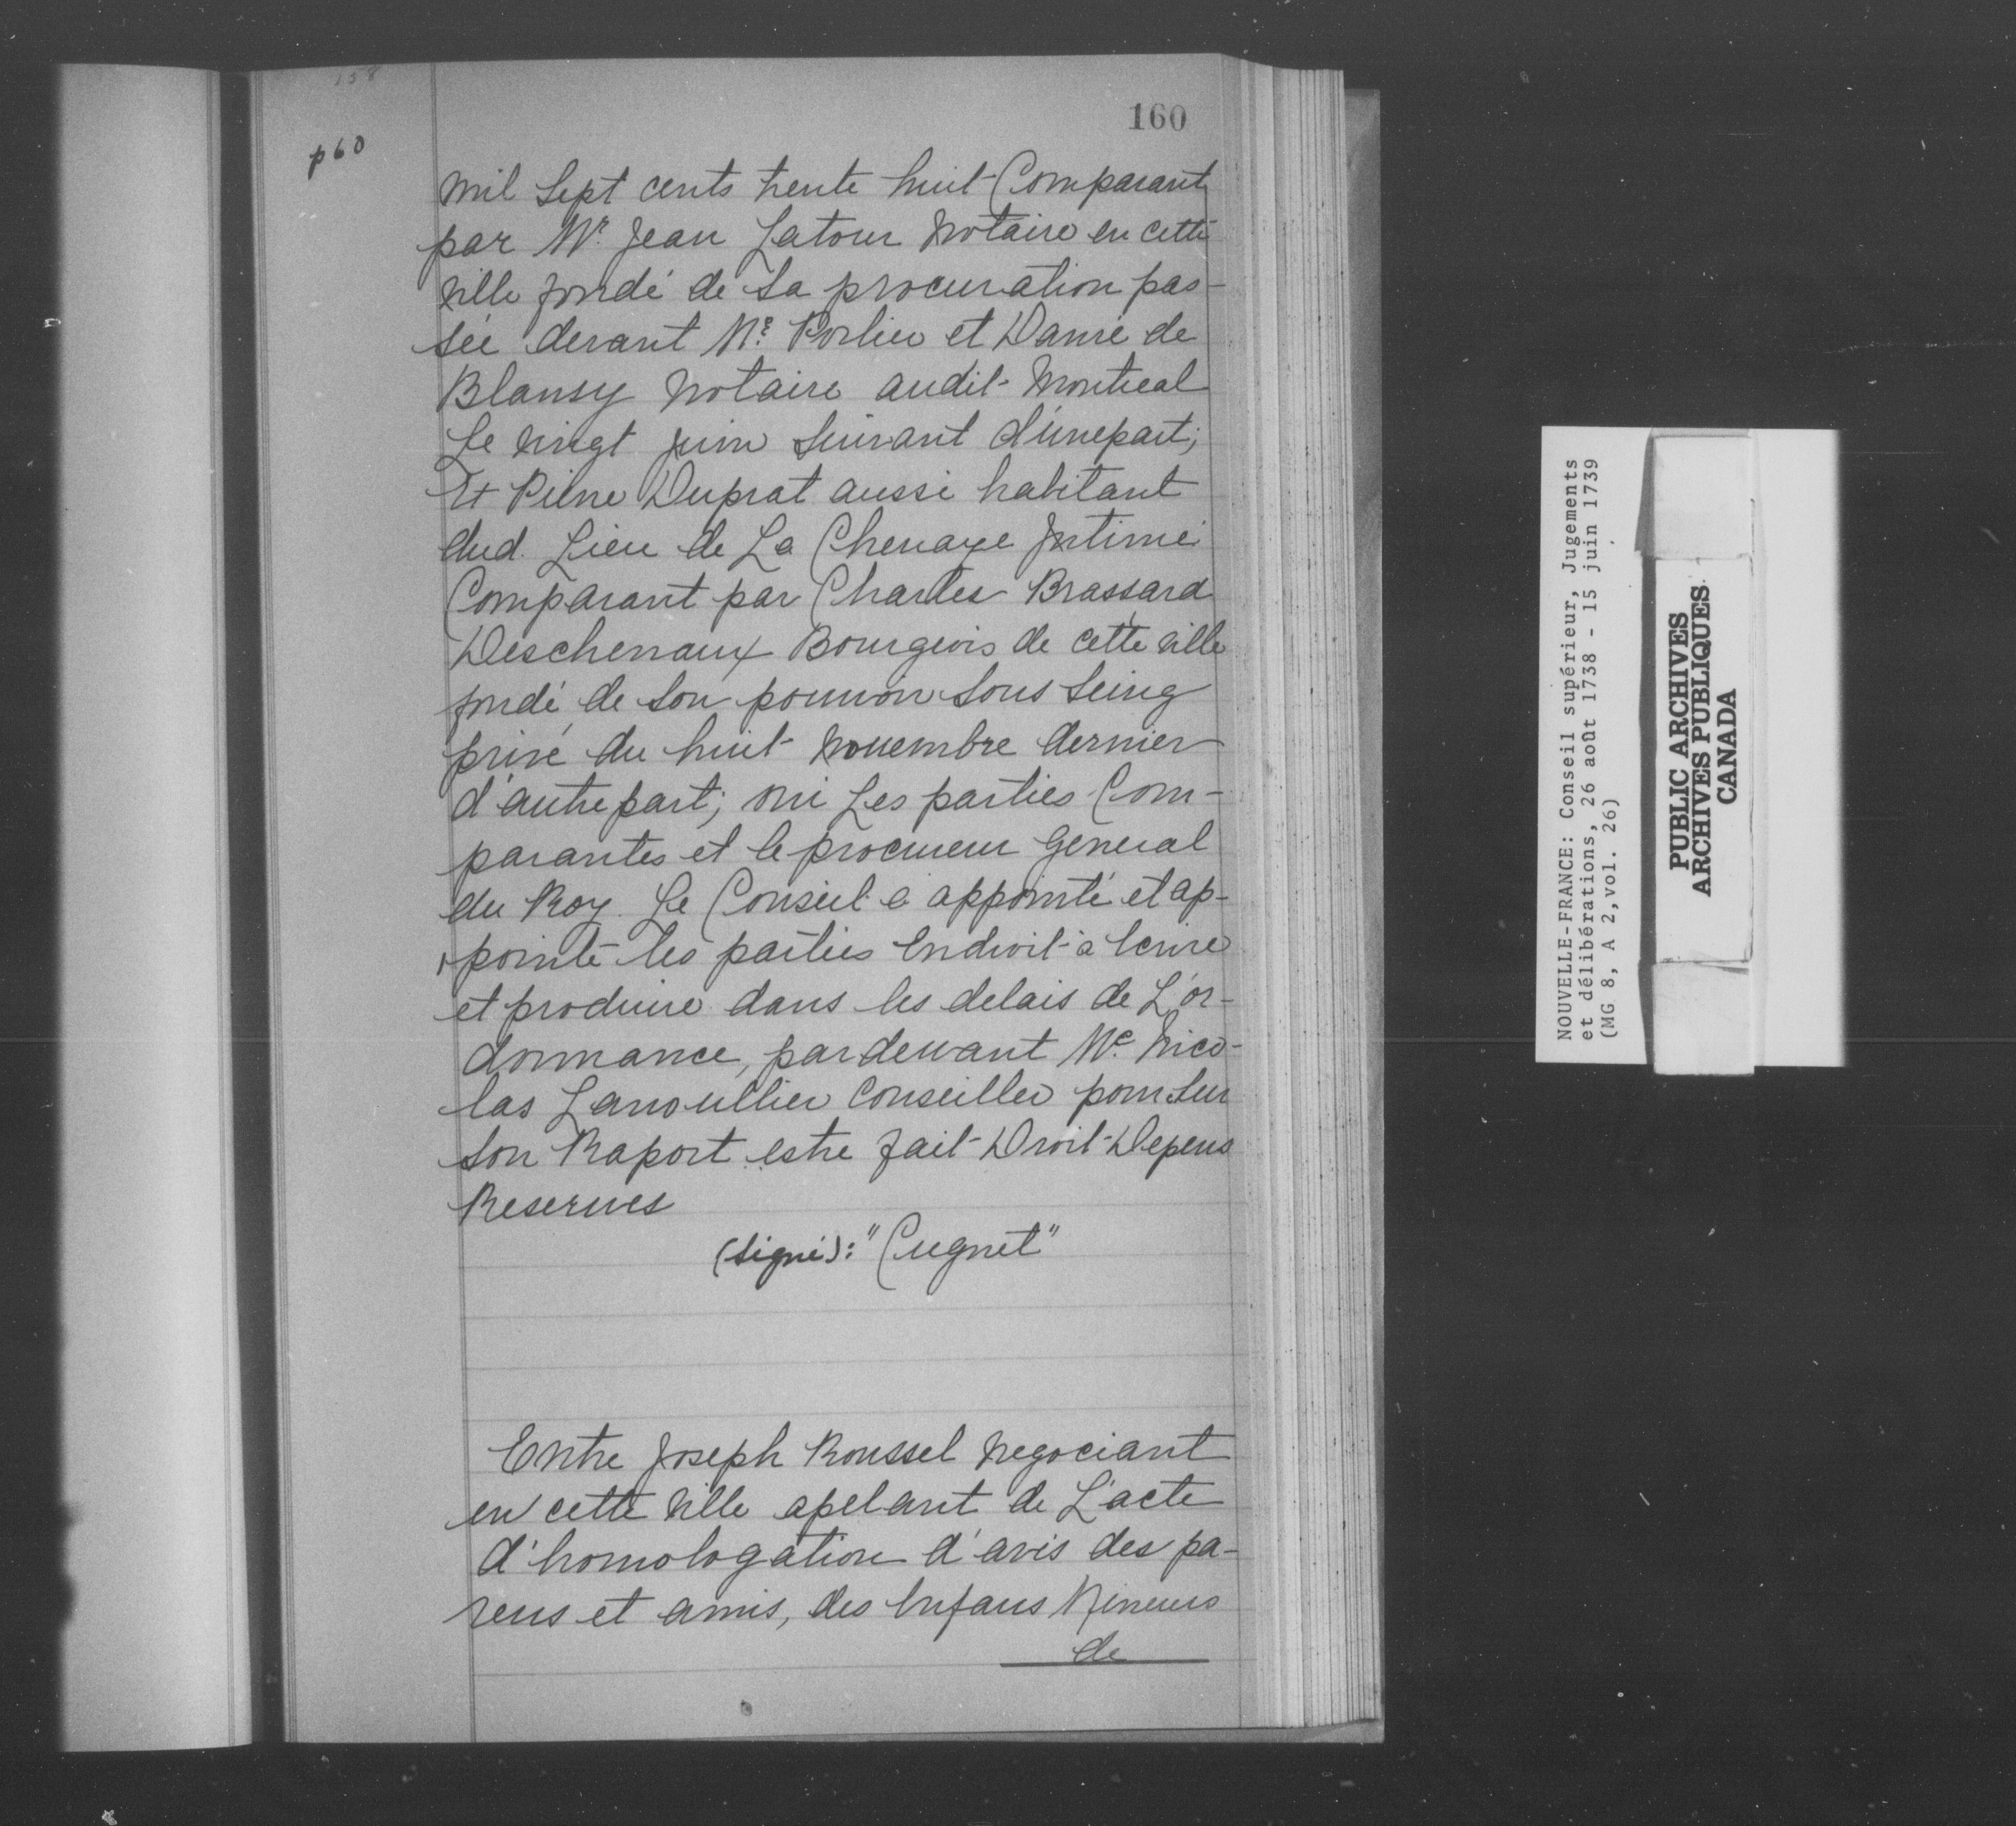 158
160
p60
mil Sept cents trente huit Comparant
par Me. Jean Latour Notaire en cette
ville fondé de Sa procuration pas-
sée devant Me. Porlier et Danré de
Blansy Notaire audit Montreal
Le vingt juin Suivant d'unepart;
Et Pierre Duprat aussi habitant
dud. Lieu de La Chenaye Intimé
Comparant par Charles Brassard
Deschenaux Bourgeois de cette ville
fondé de Son pouuoir Sous Seing
privé du huit Nouembre dernier
d'autre part; oui Les parties Com-
parantes et le procureur General
du Roy. Le Conseil a appointé et ap-
pointe les parties Endroit à Ecrire
et produire dans les delais de L'or-
donnance, pardeuant Me. Nico-
las Lanoullier Conseiller pour Sur
Son Raport estre fait Droit Depens
Reserues
(Signé): "Cugnet"
Entre Joseph Roussel Negociant
en cette ville apelant de L'acte
d'homologation d'avis des pa-
rens et amis, des Enfans Mineurs
de
NOUVELLE-FRANCE: Conseil supérieur, Jugements
et délibérations, 26 août 1738 - 15 juin 1739
(MG 8, A 2,vol. 26)
PUBLIC ARCHIVES
ARCHIVES PUBLIQUES
CANADA